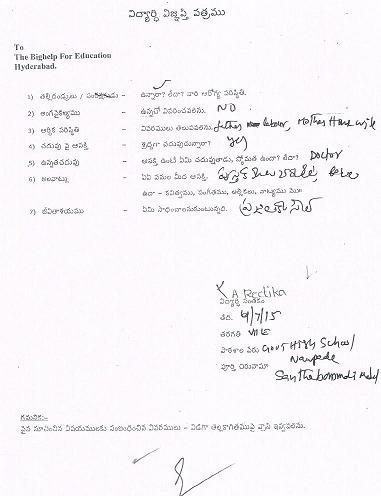 విద్యార్థి విజ్ఞప్తి పత్రము
To
The Bighelp For Education
Hyderabad.
1) తల్లిదండ్రులు / సంరక్షకుడు - ఉన్నారా? లేదా? వారి ఆరోగ్య పరిస్థితి.
2) అంగవైకల్యము - ఉన్నచో వివరించవలెను. NO
3) ఆర్థిక పరిస్థితి - వివరములు తెలుపవలెను. father labour, Mother House wife
4) చదువు పై ఆసక్తి - శ్రద్ధగా చదువుచున్నారా? yes
5) ఉన్నతచదువు - ఆసక్తి ఉంటే ఏమి చదువుతాడు, స్తోమత ఉందా? లేదా? Doctor
6) అలవాట్లు - ఏఏ పనుల మీద ఆసక్తి.
ఉదా - కవిత్వము, సంగీతము, ఆర్టికలు, నాట్యము మొ॥
7) జీవితాశయము - ఏమి సాధించాలనుకుంటున్నది.
A Reetika
విద్యార్థి సంతకం
తేది. 4/7/15
తరగతి VIII
పాఠశాల పేరు Govt High School
Naupada
పూర్తి చిరునామా
Santhabommali
గమనిక:-
పైన సూచించిన విషయములకు సంబంధించిన వివరములు - విడిగా తెల్లకాగితముపై వ్రాసి ఇవ్వవలెను.